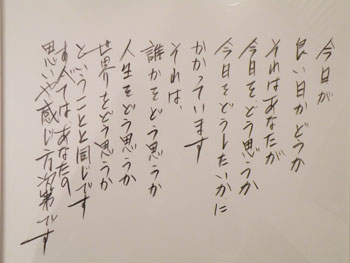 今日が
良い日かどうか
それはあなたが
今日をどう思うか
今日をどうしたいかに
かかっています
それは、
誰かをどう思うか
人生をどう思うか
世界をどう思うか
ということと同じです
すべてはあなたの
思いや感じ方次第です